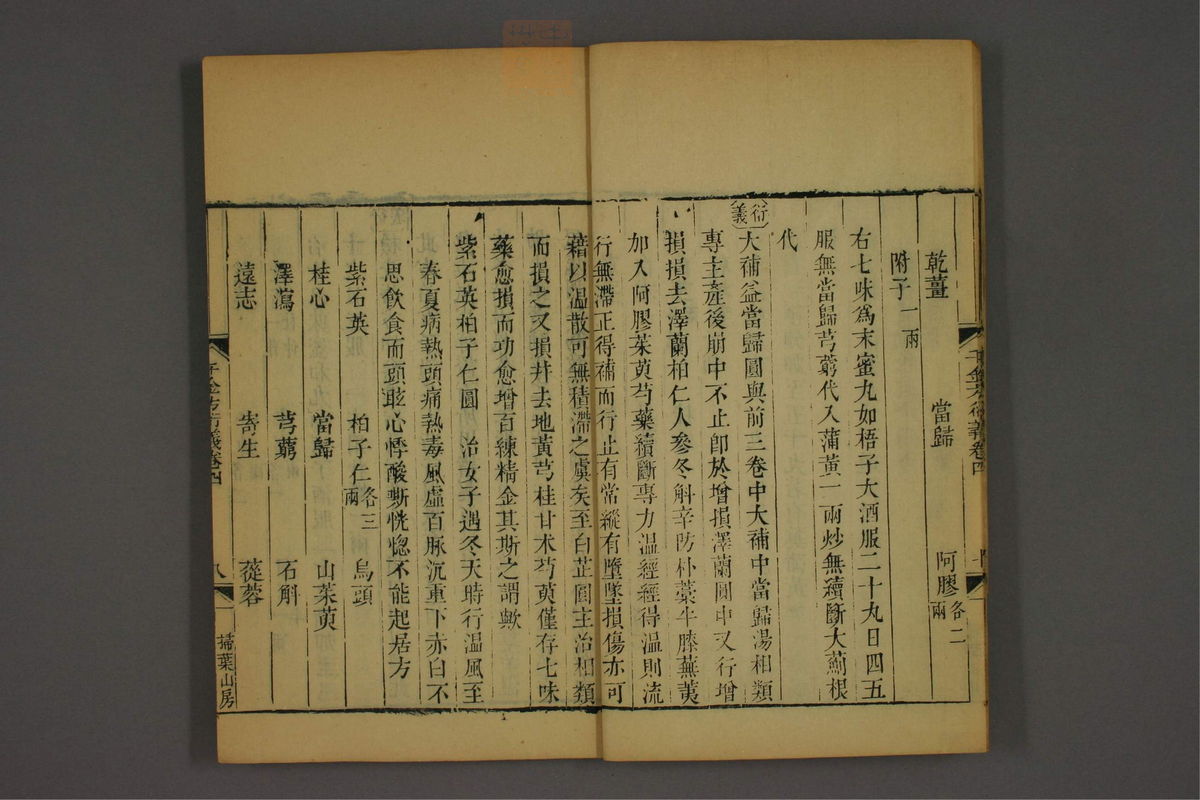 乾薑 當歸 阿膠各二兩
附子一兩
右七味爲末蜜丸如梧子大酒服二十丸日四五
服無當歸芎藭代入蒲黃一兩炒無續斷大薊根
代
衍義 大補益當歸圓與前三卷中大補中當歸湯相類
專主產後崩中不止卽於增損澤蘭圓中又行增
損損去澤蘭柏仁人參冬斛辛防朴藁牛膝蕪荑
加入阿膠茱萸芍藥續斷專力溫經經得溫則流
行無滯正得補而行止有常縱有墮墜損傷亦可
藉以溫散可無積滯之虞矣至白芷圓主治相類
而損之又損幷去地黃芎桂甘朮芍萸僅存七味
藥愈損而功愈增百練精金其斯之謂歟
紫石英柏子仁圓 治女子遇冬天時行溫風至
春夏病熱頭痛熱毒風虛百脉沉重下赤白不
思飲食而頭眩心悸酸嘶恍惚不能起居方
紫石英 柏子仁各三兩 烏頭
桂心 當歸 山茱萸
澤瀉 芎藭 石斛
遠志 寄生 蓯蓉
千金方衍義卷四 八 掃葉山房